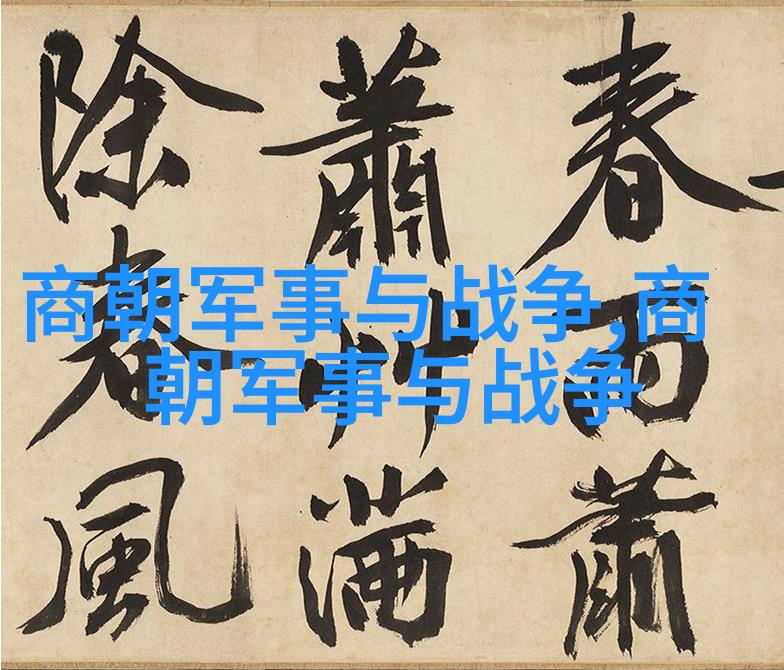 春雨蕭
蕭艸滿
除春風
商朝军事与战争,商
朝军事与战争